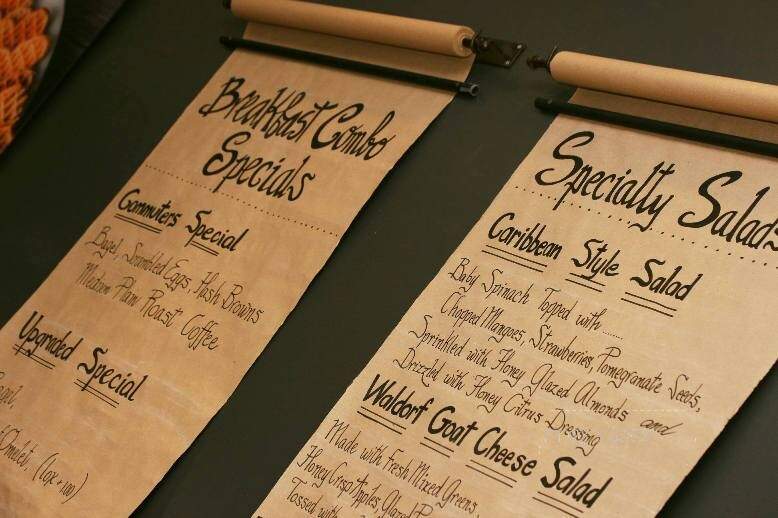 Breakfast Combo
Specials
Commuters Special
Bagel, Scrambled Eggs, Hash Browns
Medium Plain Roast Coffee
Upgraded Special
Bagel,
Omelet,
Specialty Salads
Caribbean Style Salad
Baby Spinach Topped with ......
Chopped Mangoes, Strawberries, Pomegranate Seeds,
Sprinkled with Honey Glazed Almonds and
Drizzled with Honey Citrus Dressing
Waldorf Goat Cheese Salad
Made with Fresh Mixed Greens,
Honey Crisp Apples, Glazed
Tossed with